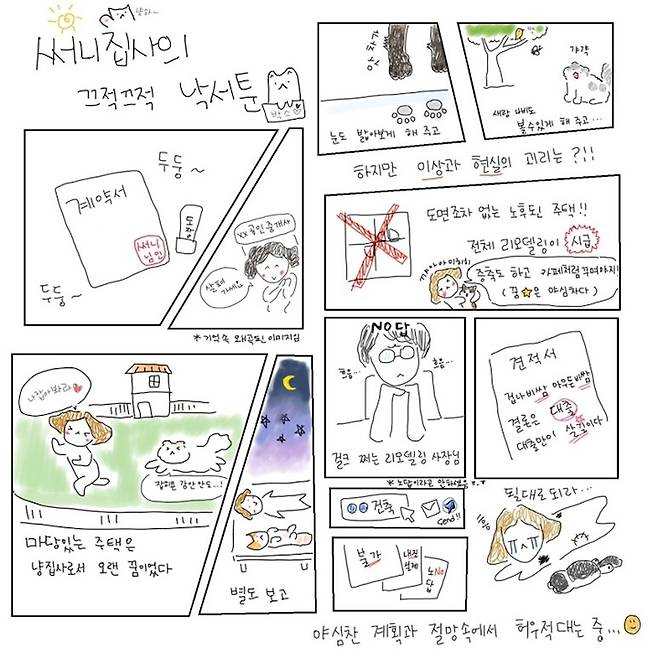 냥하~
써니집사의
끄적끄적 낙서툰
박스♡
두둥~
계약서
써니
님인
도장
두둥~
XX공인중개사
살펴
가세요
*기억속 왜곡된 이미지임
나잡아봐라~♥
잡히면 강안안도..!
마당있는 주택은
냥집사로서 오랜 꿈이었다
별도 보고
눈도 밟아보게 해 주고
갸갹
새랑 나비도
볼수있게 해 주고...
하지만 이상과 현실의 괴리는?!!
도면조차 없는 노후된 주택!!
전체 리모델링이 시급
꺄아아 이히히
증축도 하고 카페처럼꾸며야지!
(꿈★은 야심차다)
NO답
흐음...
흐음...
걸크 쩌는 리모델링 사장님
*노답이라고 안하셨음ㅜ.ㅜ
견적서
겁나비쌈 아무튼비쌈
결론은 대출
대출만이 살길이다
건축
send!!
불가
내진
설계
노NO
답
될대로 되라...
ㅠㅅㅠ
야심찬 계획과 절망속에서 허우적대는 중...